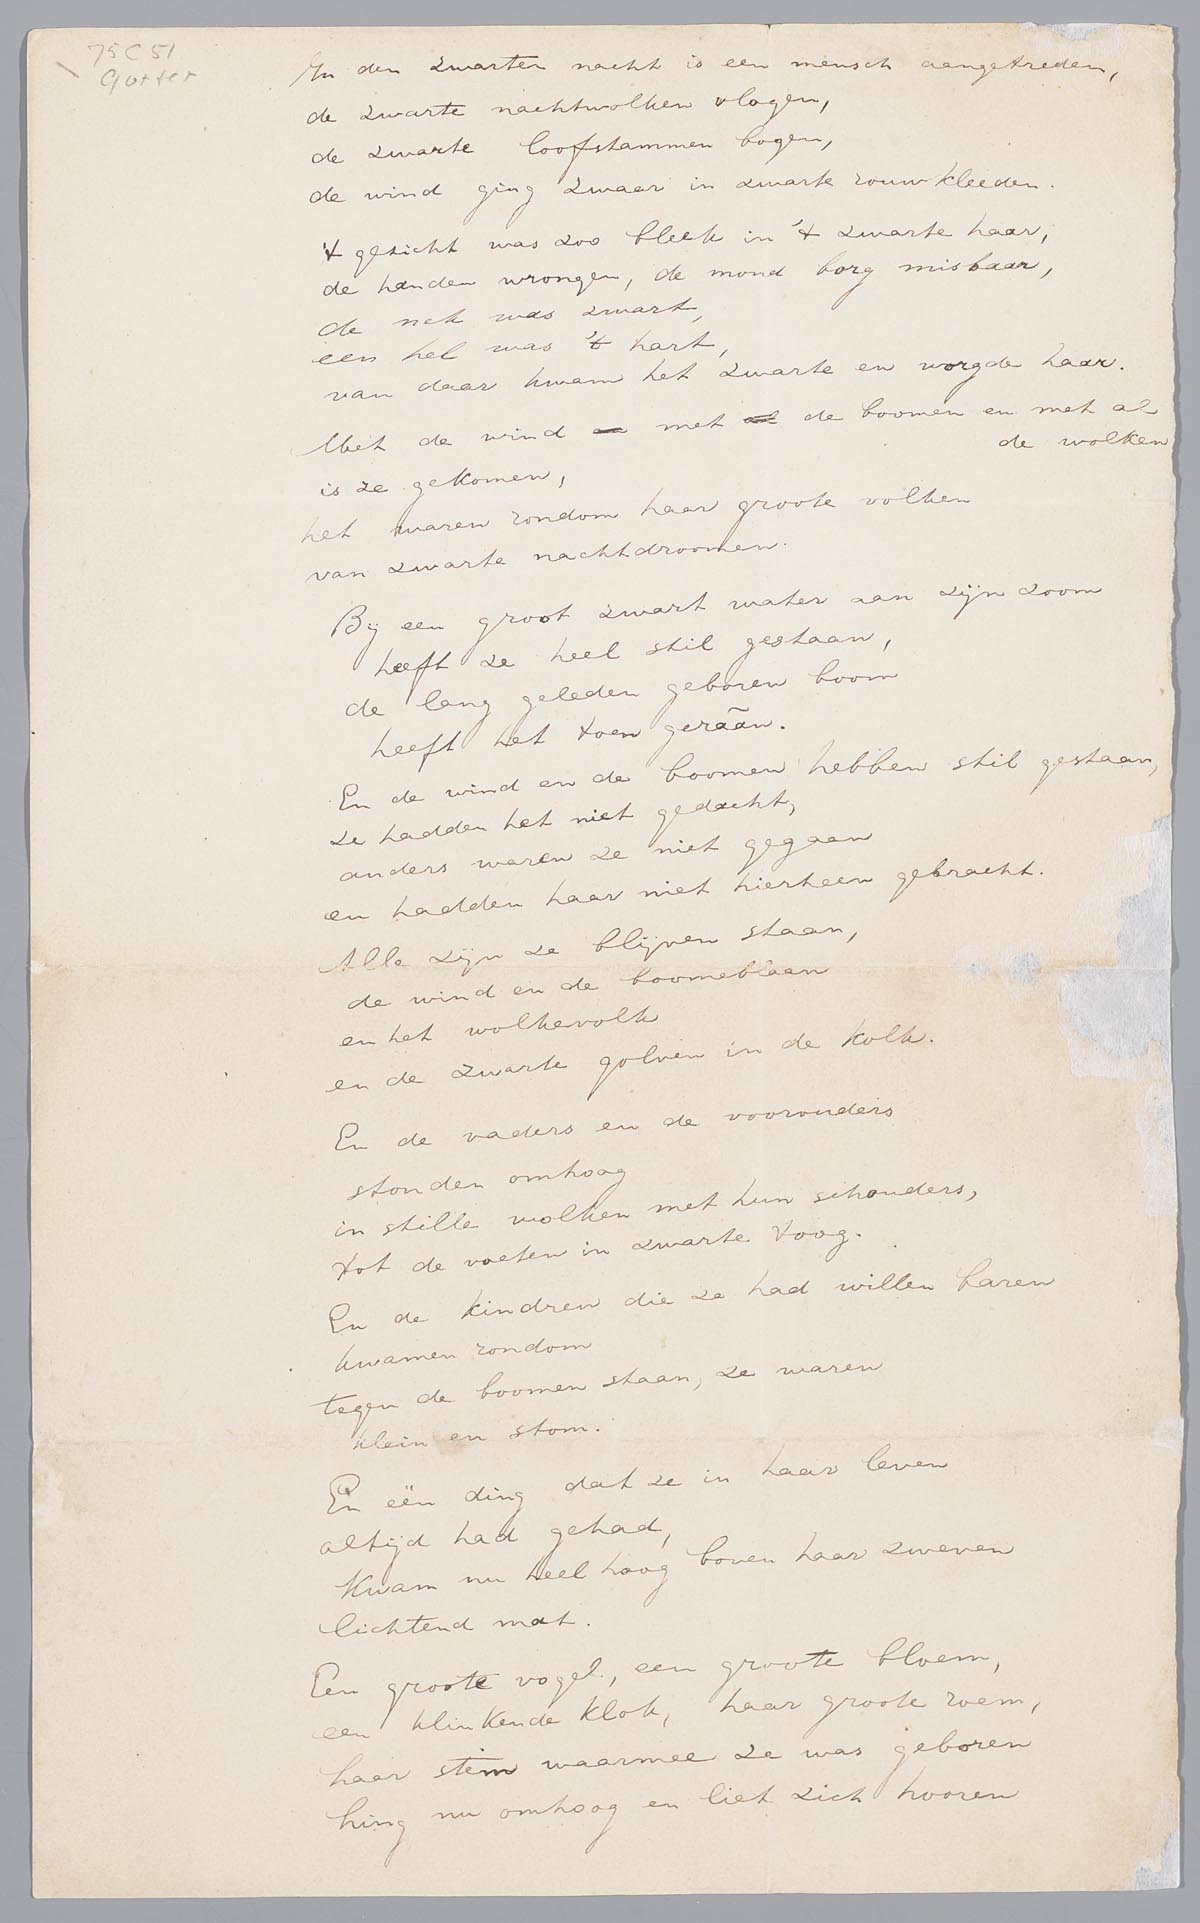 75 C 51
Gorter
In den zwarten nacht is een mensch aangetreden,
de zwarte nachtwolken vlogen,
de zwarte loofstammen bogen,
de wind ging zwaar in zwarte rouwkleeden.
't gezicht was zoo bleek in 't zwarte haar,
de handen wrongen, de mond borg misbaar,
de nek was zwart,
een hel was 't hart,
van daar kwam het zwarte en worgde haar.
Met de wind en met al de boomen en met al
de wolken
is ze gekomen,
het waren rondom haar groote volken
van zwarte nachtdroomen.
Bij een groot zwart water aan zijn zoom
heeft ze heel stil gestaan,
de lang geleden geboren boom
heeft het toen geraãn.
En de wind en de boomen hebben stil gestaan,
ze hadden het niet gedacht,
anders waren ze niet gegaan
en hadden haar niet hierheen gebracht.
Alle zijn ze blijven staan,
de wind en de boomeblaan
en het wolkevolk
en de zwarte golven in de kolk.
En de vaders en de voorouders
stonden omhoog
in stille wolken met hun schouders,
tot de voeten in zwarte toog.
En de kindren die ze had willen baren
kwamen rondom
tegen de boomen staan, ze waren
klein en stom.
En ëën ding dat ze in haar leven
altijd had gehad,
kwam nu heel hoog boven haar zweven
lichtend mat.
Een groote vogel, een groote bloem,
een klinkende klok, haar groote roem,
haar stem waarmee ze was geboren
hing nu omhoog en liet zich hooren